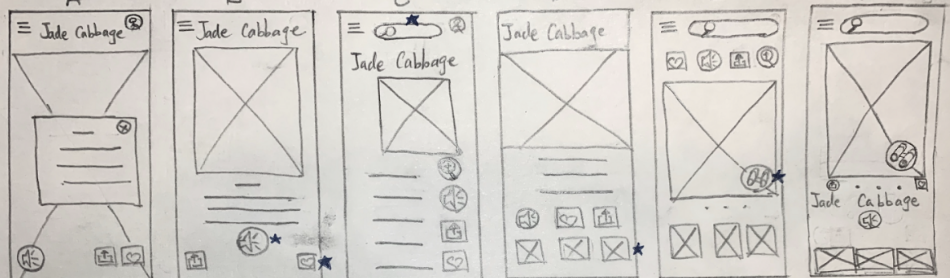 Jade Cabbage
Jade Cabbage
Jade Cabbage
Jade Cabbage
Jade Cabbage